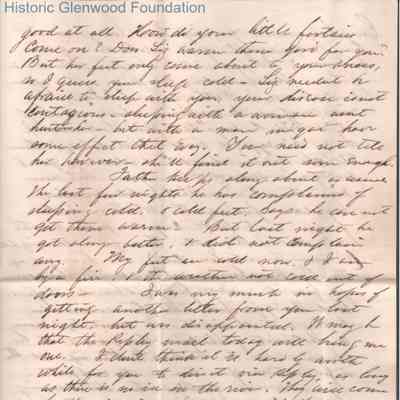 Historic Glenwood Foundation
good at all. How do your little footsies
come on? Does Liz warm them good for you?
But her feet only come about to your knees,
so I guess you sleep cold — Liz needent be
afraid to sleep with you, your disease isnt
contagious — sleeping with a woman wont
hurt her — but with a man might have
some effect that way. You need not tell
her however — she'll find it out soon enough
Father keeps along about as usual
The last few nights he has complained of
sleeping cold. & cold feet. Says he can not
get them warm. But last night he
got along better, & did not complain
any. My feet are cold now, & I am
by a fire & the weather not cold out of
doors — I was very much in hopes of
getting another letter from you last
night, but was disappointed. It may be
that the Ripley mail today will bring me
one. I dont think it is hardly worth
while for you to direct via Ripley, as long
as there is no ice in the river. They will come